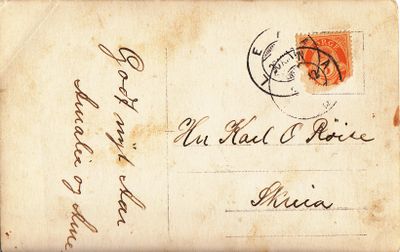 Godt nyt Aar
Amalie og Arne
Hr Karl O Roise
Skreia
LENA